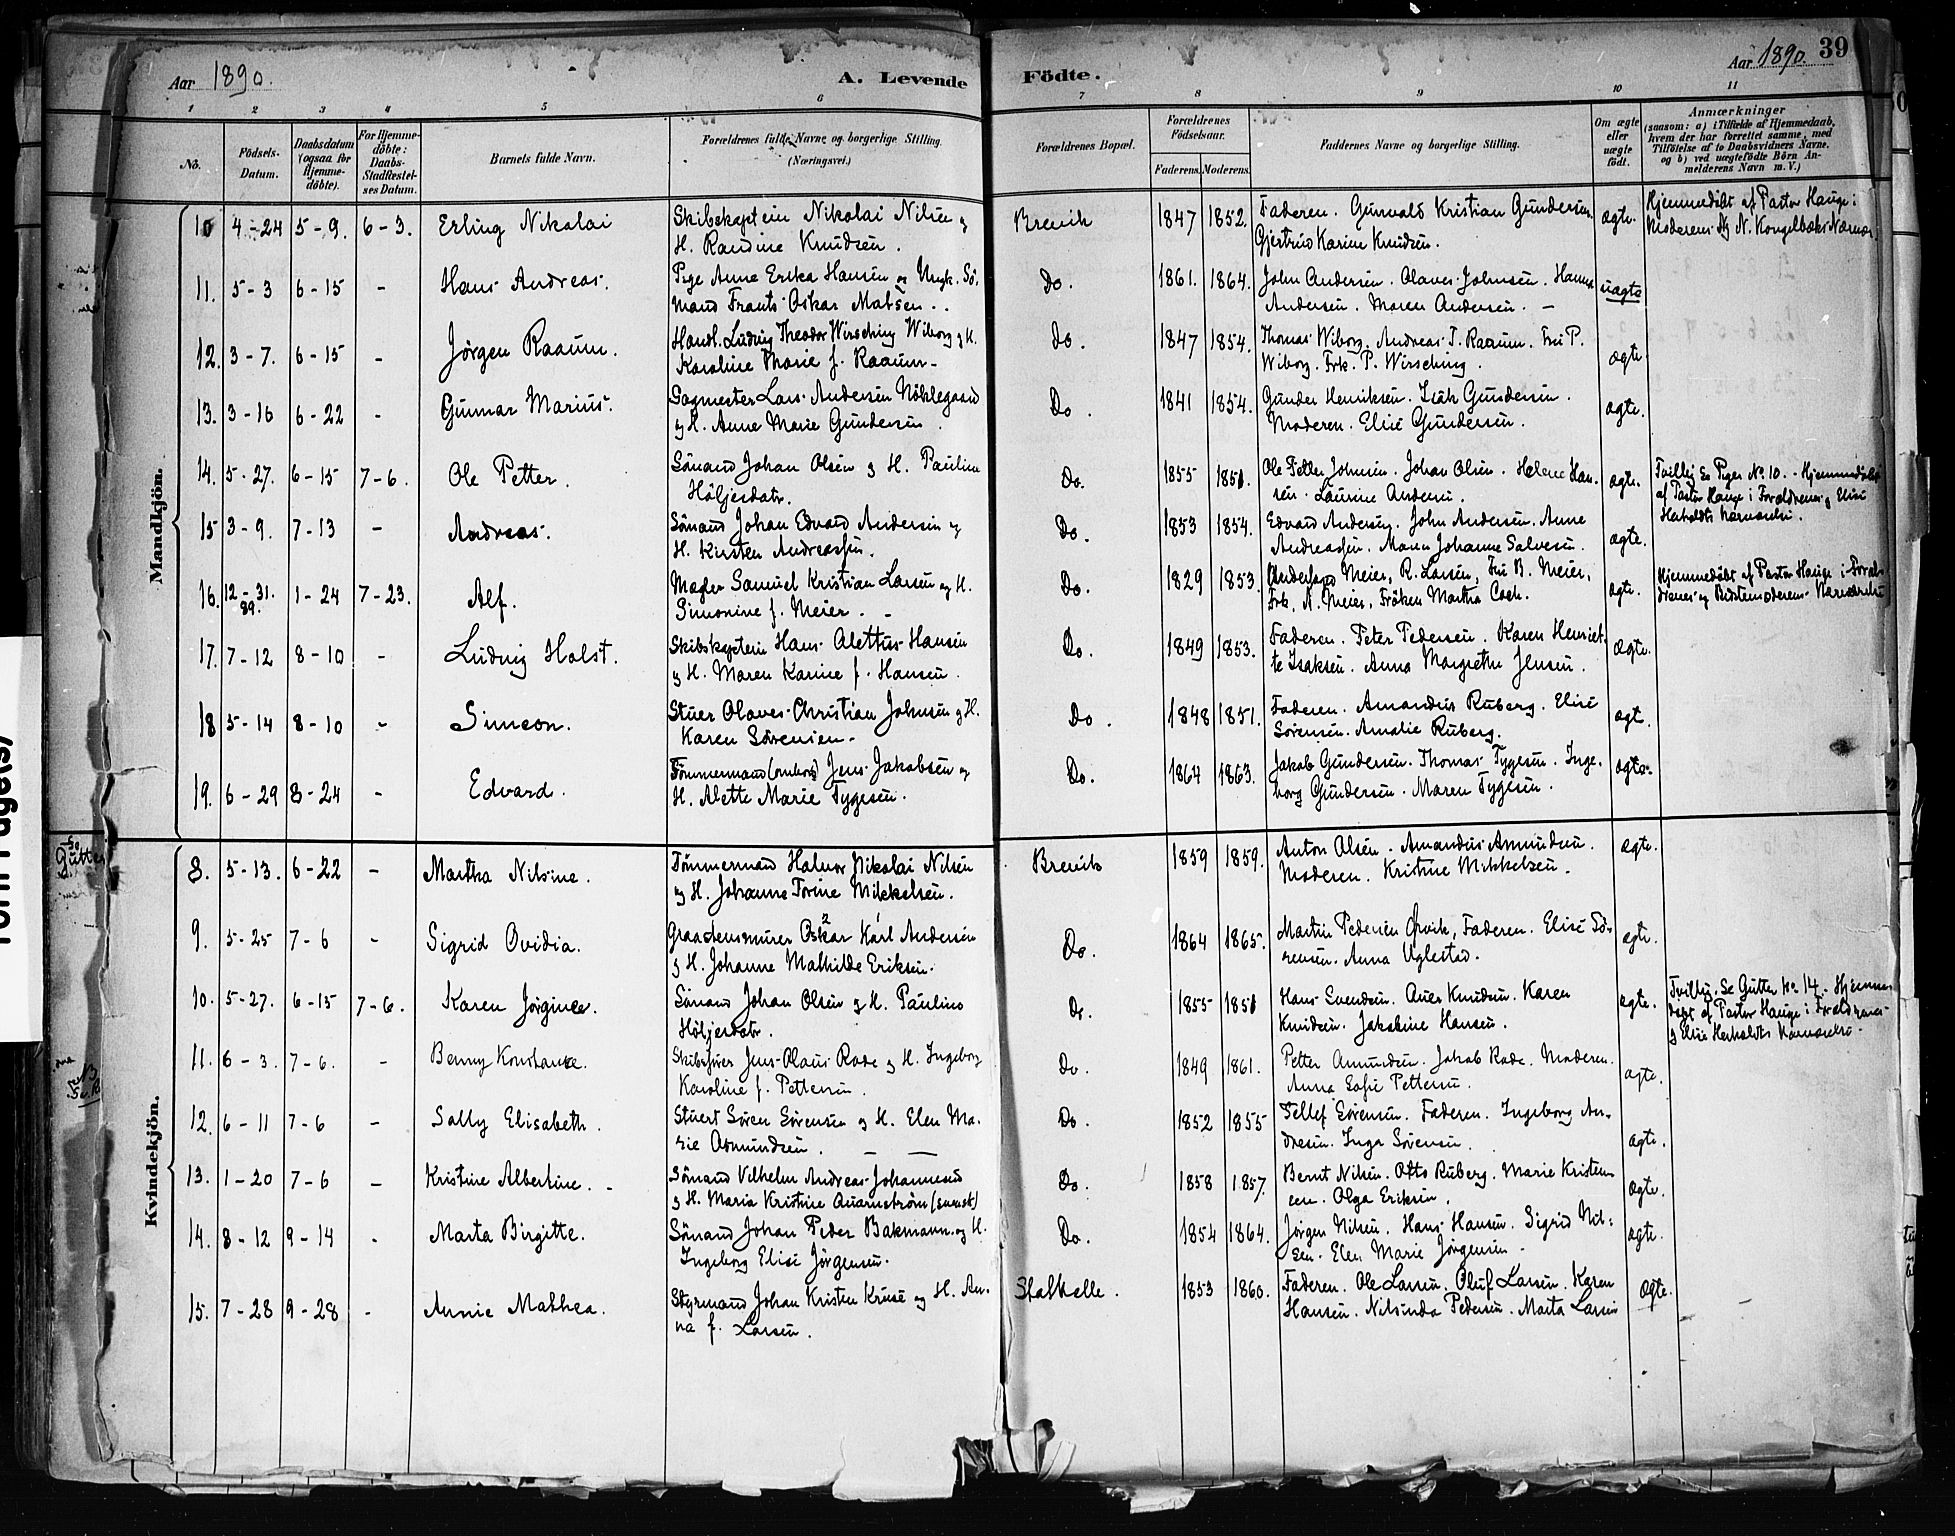 Aar 1890.
A. Levende
Födte.
Aar 1890. 39
1 2 3 4 5 6 7 8 9 10 11
No.
Födsels-Datum.
Daabsdatum (ogsaa for Hjemme-döbte).
For Hjemme-döbte: Daabs-Stadfæstel-ses Datum.
Barnets fulde Navn.
Forældrenes fulde Navne og borgerlige Stilling. (Næringsvei.)
Forældrenes Bopæl.
Forældrenes Födselsaar.
Faderens. Moderens.
Faddernes Navne og borgerlige Stilling.
Om ægte eller uægte födt.
Anmærkninger
(saasom: a) i Tilfælde af Hjemmedaab, hvem der har forrettet samme, med Tilföielse af to Daabsvidners Navne, og b) ved uægtefödte Börn An-melderens Navn m. V.)
Mandkjön.
10 4-24 5-9. 6-3. Erling Nikolai
Skibskaptein Nikolai Nilsen og
H. Randine Knudsen.
Brevik 1847 1852.
Faderen. Gunvald Kristian Gundersen.
Gjertrud Karine Knudsen.
ægte.
Hjemmedöbt af Pastor Hauge i
Moderens og N. Kongelbæks Nærvær.
11. 5-3 6-15 - Hans Andreas.
Pige Anne Erika Hansen og Ungk. Sö-
mand Frants Oskar Matsen..
Do. 1861. 1864.
John Andersen. Olaves Johnsen. Hanna
Andersen. Maren Andersen. -
uægte
12. 3-7. 6-15 - Jörgen Raaum.
Handl. Ludvig Theodor Wirsching Wiborg og H.
Karoline Marie f. Raaum-
Do. 1847 1854.
Thomas Wiborg. Andreas T. Raaum. Fru P.
Wiborg. Frk. P. Wirsching.
ægte
13. 3-16 6-22 - Gunnar Marius.
Sagmester Lars Andersen Nöklegaard
og H. Anne Marie Gundersen.
Do. 1841 1854.
Gunder Henriksen. Isak Gundersen.
Moderen. Elise Gundersen.
ægte.
14. 5-27. 6-15 7-6. Ole Petter.
Sömand Johan Olsen og H. Pauline
Höljesdatr.
Do. 1855 1851.
Ole Petter Johnsen. Johan Olsen. Helene Han-
sen. Laurine Andersen.
ægte.
Tvilling Se Piger No. 10. - Hjemmedöbt
af Pastor Hauge i Forældrenes og Elise
Herholdts Nærværelse.
15 3-9. 7-13 - Andreas.
Sömand Johan Edvard Andersen og
H. Kirsten Andreassen.
Do. 1853 1854.
Edvard Andersen. John Andersen. Anne
Andreassen. Maren Johanne Salvesen.
ægte.
16. 12-31. 89. 1-24 7-23. Alf.
Mægler Samuel Kristian Larsen og H.
Simonine f. Meier. -
Do. 1829 1853.
Meier, R. Larsen, Fru B. Meier,
Frk. N. Meier, Fröken Martha Coch.
ægte.
Hjemmedöbt af Pastor Hauge i Foræl-
drenes og Bedstemoderens Nærværelse
17. 7-12 8-10 - Ludvig Holst.
Skibskaptein Hans Alettus Hansen
og H. Maren Karine f. Hansen.
Do. 1849 1853.
Faderen. Peter Pedersen. Karen Henriet-
te Isaksen. Anna Margrethe Jensen.
ægte.
18 5-14 8-10 - Simeon.
Stuer Olaves Christian Johnsen og H.
Karen Sörensen-
Do. 1848 1851.
Faderen. Amandus Ruberg. Elise
Sörensen. Amalie Ruberg.
ægte.
19. 6-29 8-24 - Edvard.
Tömmermand (ombord) Jens Jakobsen og
H. Alette Marie Tygesen.
Do. 1864 1863.
Jakob Gundersen. Thomas Tygesen. Inge-
borg Gundersen. Maren Tygesen.
ægte.
Kvindekjön.
8. 5-13. 6-22 - Martha Nilsine.
Tömmermand Halvor Nikolai Nilsen
og H. Johanne Torine Mikkelsen.
Brevik 1859 1859.
Anton Olsen. Amandus Amundsen.
Moderen. Kristine Mikkelsen.
ægte.
9. 5-25 7-6 - Sigrid Ovidia.
Graastensmurer Oskar Karl Andersen
og H. Johanne Mathilde Eriksen.
Do. 1864 1865.
Martin Pedersen Ørvik, Faderen. Elise Sö-
rensen. Anna Uglestad.
ægte.
10. 5-27. 6-15 7-6. Karen Jörgine.
Sömand Johan Olsen og H. Pauline
Höljesdatr.
Do. 1855 1851
Hans Svendsen. Aner Knudsen. Karen
Knudsen. Jakobine Hansen.
ægte.
Tvilling. Se Gutter No. 14. Hjemme-
döbt af Pastor Hauge i Forældrenes
og Elise Herholdts Nærværelse.
11. 6-3. 7-6. - Benny Konstance.
Skibsförer Jens Olaus Rode og H. Ingeborg
Karoline f. Pettersen
Do. 1849 1861.
Petter Amundsen. Jakob Rode. Moderen.
Anna Sofie Pettersen.
ægte.
12. 6-11 7-6 - Sally Elisabeth.
Stuert Sören Sörensen og H. Elen Ma-
rie Asmundsen.
Do. 1852 1855
Tellef Sörensen. Faderen. Ingeborg An-
dresen. Inga Sörensen.
ægte.
13. 1-20 7-6 - Kristine Albertine. -
Sömand Vilhelm Andreas Johannesen
og H. Maria Kristine Quarnström (svensk)
Do. 1858 1857.
Bernt Nilsen. Otto Ruberg. Marie Kristen-
sen. Olga Eriksen.
ægte.
14. 8-12 9-14 - Marta Birgitte.
Sömand Johan Peder Bakmann og H.
Ingeborg Elise Jörgensen.
Do. 1854 1864.
Jörgen Nilsen. Hans Hansen. Sigrid Nil-
sen. Elen Marie Jörgensen.
ægte.
15. 7-28 9-28 - Annie Mathea.
Styrmand Johan Kristen Kruse og H. An-
na f. Larsen.
Stathelle. 1853 1860.
Faderen. Ole Larsen. Oluf Larsen. Karen
Hansen. Nilsinda Pedersen. Marta Larsen
ægte.